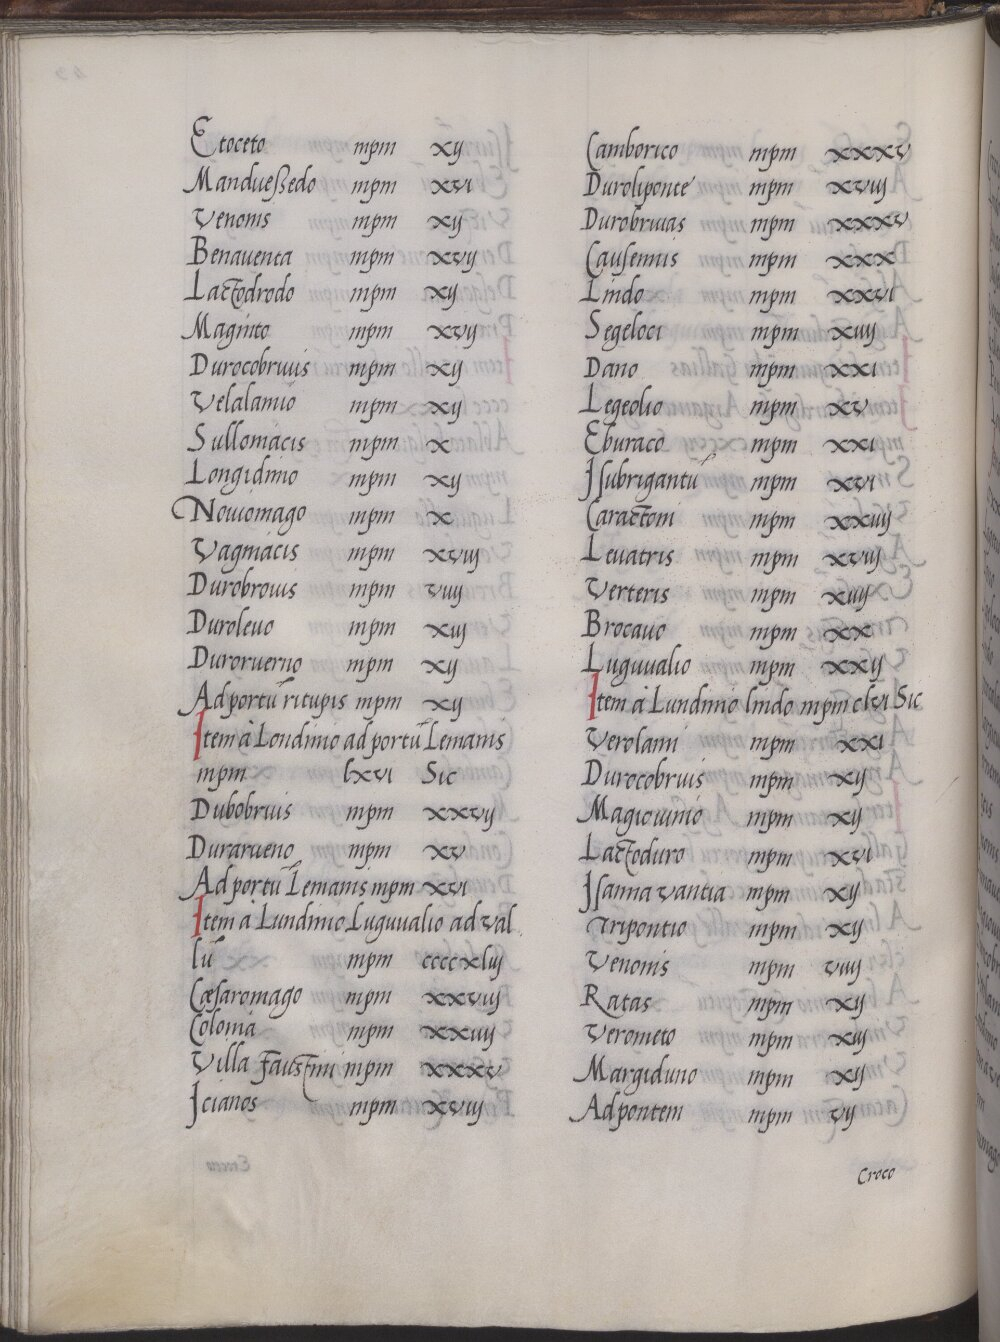 Etoceto mpm xij
Manduessedo mpm xvi
Venonis mpm xij
Benauenta mpm xvij
Lactodrodo mpm xij
Maginto mpm xvij
Durocobriuis mpm xij
Velalamio mpm xij
Sullomacis mpm x
Longidinio mpm xij
Nouiomago mpm x
Vagniacis mpm xviij
Durobrouis mpm viiij
Duroleuo mpm xiij
Duroruerno mpm xij
Ad portū ritupis mpm xij
Item à Londinio ad portū Lemanis
mpm lxvi Sic
Dubobriuis mpm xxvij
Durarueno mpm xv
Ad portū Lemanis mpm xvi
Item à Lundinio Luguualio ad val
lū mpm ccccxliij
Cæsaromago mpm xxviij
Colonia mpm xxiiij
Villa Faustini mpm xxxv
Icianos mpm xviij
Camborico mpm xxxv
Duroliponte mpm xviij
Durobriuas mpm xxxv
Causennis mpm xxx
Lindo mpm xxvi
Segeloci mpm xiiij
Dano mpm xxi
Legeolio mpm xv
Eburaco mpm xxi
Isubrigantū mpm xvi
Caractoni mpm xxiiij
Leuatris mpm xviij
Verteris mpm xiiij
Brocauo mpm xx
Luguualio mpm xxij
Item à Lundinio lindo mpm clvi Sic
Verolami mpm xxi
Durocobriuis mpm xij
Magiouinio mpm xij
Lactoduro mpm xvi
Isanna vantia mpm xij
Tripontio mpm xij
Venonis mpm viiij
Ratas mpm xij
Verometo mpm xiij
Margiduno mpm xij
Ad pontem mpm vij
Croco